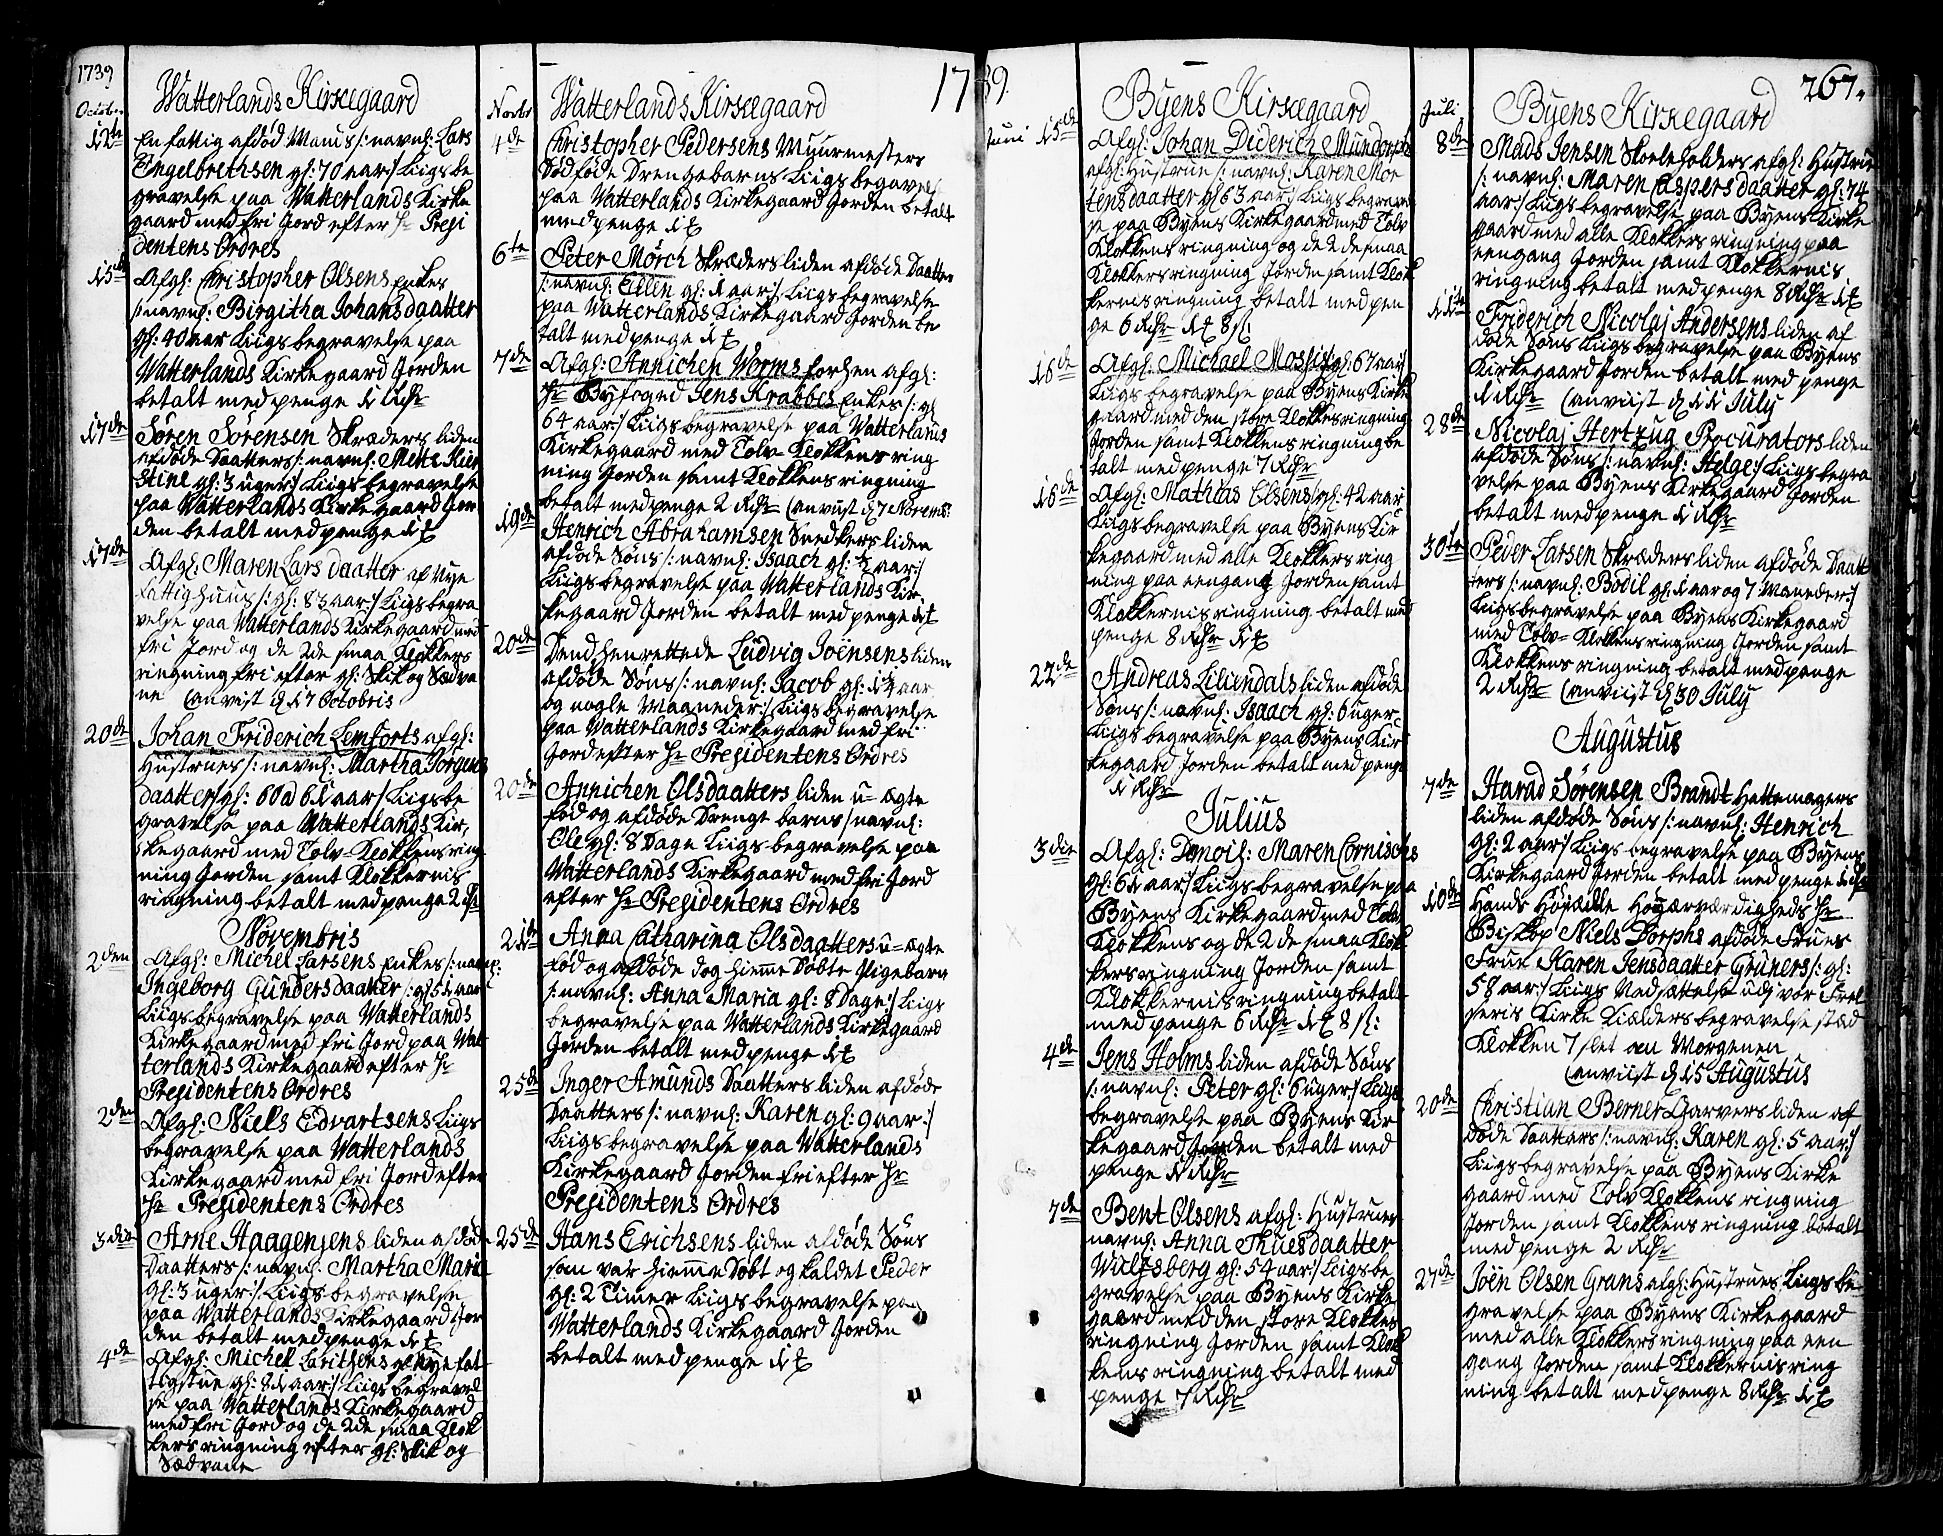 1739
Watterlands Kirkegaard
October
12te En fattig afdød Mands /: navnl: Lars
Engelbrethsen gl: 70 aar :/ Liigs be
gravelse paa Watterlands Kirke
gaard med fri Jord efter Hr Presi
dentens Ordres
15de Afgl: Christopher Olsens Enkes
/: navnl: Birgitha Johansdaatter
gl: 40 aar Liigs begravelse paa
Watterlands Kirkegaard Jorden
betalt med penge 1 Rdlr
17de Søren Sørensen Skræders liden
afdøde Daatters /: navnl: Mette Kier
Stine gl: 3 uger :/ Liigs begravelse
paa Watterlands Kirkegaard Jor
den betalt med penge
17de Afgl: Maren Lars daatter af Nye
fattighuus /: gl: 83 aar :/ Liigs begra
velse paa Watterlands Kirkegaard med
fri Jord og de 2de smaa Klokkers
ringning fri efter gl: Skik og Sædva
ne Anvist d 17 Octobris
20de Johan Friderich Lemforts afgl:
Hustrues /: navnl: Martha Jørgens
daatter gl: 60 a 61 aar :/ Liigs be
gravelse paa Watterlands Kir,
kegaard med Tolv-Klokkens ring
ning Jorden samt Klokkernis
ringning betalt med penge 2 Rdlr
Novembris
2den Afgl: Michel Larsens Enkes /: navnl:
Ingeborg Gundersdaatter /: gl 51 aar
Liigs begravelse paa Watterlands
Kirkegaard med fri Jord paa Wat
terlands Kirkegaard efter Hr
Presidentens Ordres
2den Afgl: Niels Edvartsens Liigs
begravelse paa Watterlands
Kirkegaard med fri Jord efter
Hr Presidentens Ordres
3die Arne Haagensens liden afdøde
Daatters /: navnl: Martha Marie
gl: 3 uger :/ Liigs begravelse
paa Watterlands Kirkegaard Jor
den betalt med penge
4de Afgl: Michel Lavithsens af Nye fat
tigstue gl: 81 aar :/ Liigs begravel
se paa Watterlands Kirkegaard
med fri Jord og de 2de smaa Klok
kers ringning efter gl: Skik og
Sædvane
17
Watterlands Kirkegaard
Novbr
4de Christopher Pedersens Muurmesters
Dødføde Drengebarns Liigs begravelse
paa Watterlands Kirkegaard Jorden betalt
med penge
6te Peter Mørch Skræders liden afdøde Daatter
/: navnl: Ellen gl: 1 aar :/ Liigs begravelse
paa Watterlands Kirkegaard Jorden be
talt med penge
7de Afgl: Annichen Worms forhen afgl:
Hr Byfoged Jens Krabbes Enkes /: gl
64 aar :/ Liigs begravelse paa Watterlands
Kirkegaard med Tolv Klokkens ring
ning Jorden samt Klokkens ringning
betalt med penge 2 Rdlr Anvist d 7 Novemb:
19de Henrich Abrahamsen Snedkers liden
afdøde Søns /: navnl: Isaach gl: ½ aar :/
Liigs begravelse paa Watterlands Kir
kegaard Jorden betalt med penge
20de Dend henrettede Ludvig Joensens liden
afdøde Søns /: navnl: Jacob gl: 1¼ aar
og nogle Maaneder :/ Liigs begravelse
paa Watterlands Kirkegaard med fri
Jord efter Hr Presidentens Ordres
20de Annichen Olsdaatters liden u-ægte
fød og afdøde Drenge barns /: navnl:
Ole gl: 8 Dage Liigs begravelse paa
Watterlands Kirkegaard med fri Jord
efter Hr Presidentens Ordres
21de Anna Catharina Olsdaatters u-ægte
fød og afdøde dog hiemme Døbte Pigebarn
/: navnl: Anna Maria gl: 8 Dage :/ Liigs
begravelse paa Watterlands Kirkegaard
Jorden betalt med penge
25de Inger Amunds Daatters liden afdøde
Daatters /: navnl: Karen gl: 9 aar :/
Liigs begravelse paa Watterlands
Kirkegaard Jorden fri efter Hr
Presidentens Ordres
25de Hans Erichsens liden afdøde Søns
som var hiemme Døbt og kaldet Peder
gl: 2 Timer Liigs begravelse paa
Watterlands Kirkegaard Jorden
betalt med penge
39.
Byens Kirkegaard
Juni 15de Afgl: Johan Diderich Mundorphs
afgl: Hustrue /: navnl: Karen Mor
tensdaatter gl 63 aar :/ Liigs begravel
se paa Byens Kirkegaard med Tolv
Klokkens ringning og de 2de smaa
Klokkers ringning Jorden samt Klok
kernis ringning betalt med pen
ge 6 Rdlr 8 sl:
16de Afgl: Michael Mossis gl: 67 aar :/
Liigs begravelse paa Byens Kirke
gaard med den store Klokkes ringning
Jorden samt Klokkens ringning be
talt med penge 7 Rdlr
16de Afgl: Mathias Olsens /: gl: 42 aar
Liigs begravelse paa Byens Kir
kegaard med alle Klokkers ring
ning paa eengang Jorden samt
Klokkernis ringning betalt med
penge 8 Rdlr
22de Andreas Liliendals liden afdøde
Søns /: navnl: Isaach gl: 6 uger
Liigs begravelse paa Byens Kir
kegaard Jorden betalt med penge
1 Rdlr
Julius
3die Afgl: Dmoil: Maren Cornischs
gl: 61 aar :/ Liigs begravelse paa
Byens Kirkegaard med Tolv
Klokkens og de 2de smaa Klok
kers ringning Jorden samt
Klokkernis ringning betalt
med penge 6 Rdlr 8 sl:
4de Jens Holms liden afdøde Søns
/: navnl: Peter gl: 6 uger :/ Liigs
begravelse paa Byens Kir
kegaard Jorden betalt med
penge 1 Rdlr
7de Bent Olsens afgl: Hustrues
navnl: Anna Thuesdaatter
Wulfsberg gl: 54 aar :/ Liigs be
gravelse paa Byens Kirke
gaard med den store Klokkes
ringning Jorden samt Klok
kens ringning betalt med
penge 7 Rdlr
267.
Byens Kirkegaard
Juli
8de Mads Jensen Skoleholders afgl: Hustrue
/: navnl: Maren Caspersdaatter gl: 74
aar :/ Liigs begravelse paa Byens Kirke
gaard med alle Klokkers ringning paa
eengang Jorden samt Klokkernis
ringning betalt med penge 8 Rdlr
11te Friderich Nicolaj Andersens liden af
døde Søns Liigs begravelse paa Byens
Kirkegaard Jorden betalt med penge
1 Rdlr Anviist d 11 July
28de Nicolaj Hertzug Procurators liden
afdøde Søns /: navnl: Helge :/ Liigs begra
velse paa Byens Kirkegaard Jorden
betalt med penge 1 Rdlr
30te Peder Larsen Skræders liden afdøde Daatt
ters /: navnl: Bodil gl: 1 aar og 7 Maaneder :/
Liigs begravelse paa Byens Kirkegaard
med Tolv-Klokkens ringning Jorden samt
Klokkens ringning betalt med penge
2 Rdlr Anviist d 30 July
Augustus
7de Harad Sørensen Brandt Hattemagers
liden afdøde Søns /: navnl: Henrich
gl: 2 aar :/ Liigs begravelse paa Byens
Kirkegaard Jorden betalt med penge 1 Rdlr
10de Hands Høyædle Høyærværdigheds Hr
Biskop Niels Dorphs afdøde Frues
Frue Karen Jensdaatter Gruners /: gl:
58 aar :/ Liigs Nedsættelse udj vor Frel
seris Kirke Kiælders begravelse stæd
Klokken 7 slet om Morgenen
Anviist d 15 Augustus
20de Christian Berner Garvers liden af
døde Daatters /: navnl: Karen gl: 5 aar :/
Liigs begravelse paa Byens Kirke
gaard med Tolv Klokkens ringning
Jorden samt Klokkens ringning betalt
med penge 2 Rdlr
27de Joen Olsen Grans afgl: Hustrues Liigs be
gravelse paa Byens Kirkegaard
med alle Klokkers ringning paa een
gang Jorden samt Klokkernis ring
ning betalt med penge 8 Rdlr